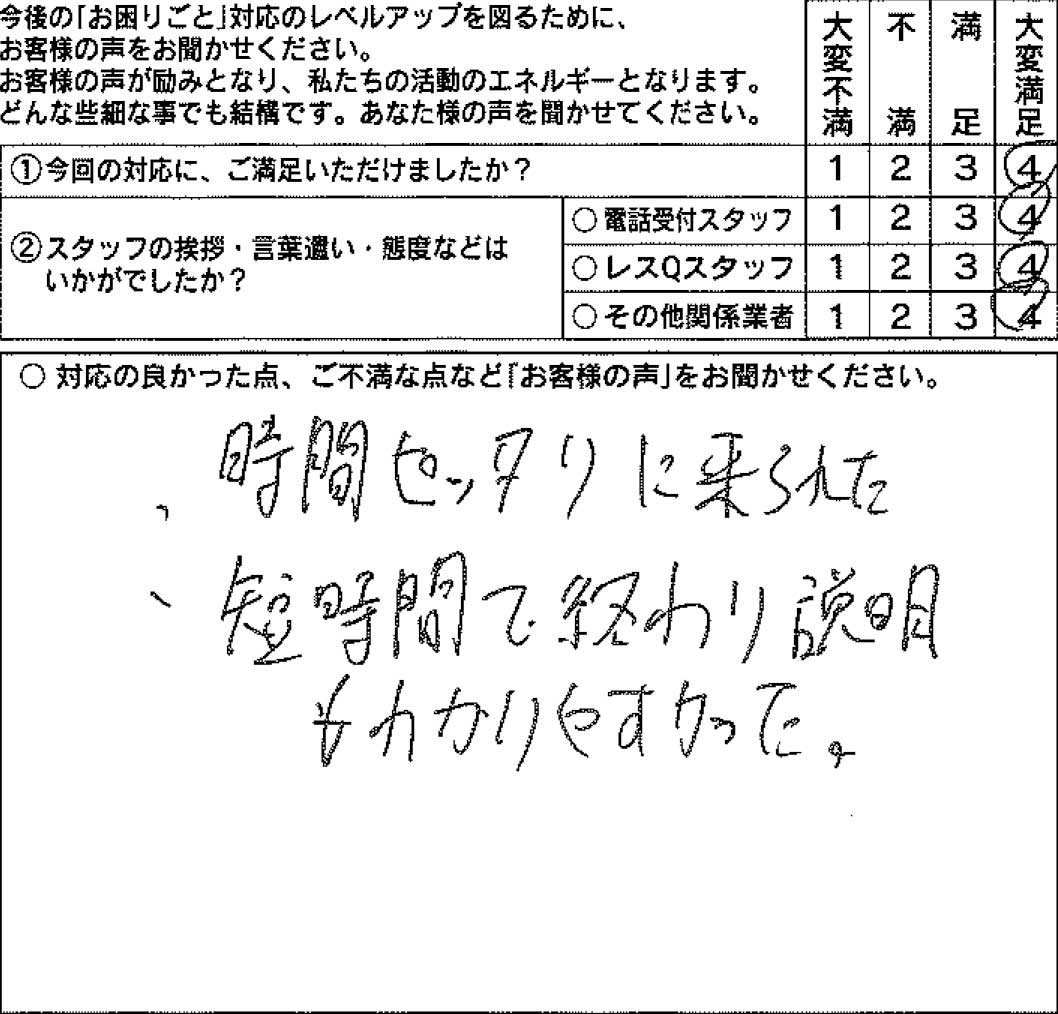 今後の「お困りごと」対応のレベルアップを図るために、
お客様の声をお聞かせください。
お客様の声が励みとなり、私たちの活動のエネルギーとなります。
どんな些細な事でも結構です。あなた様の声を聞かせてください。
大変不満 不満 満足 大変満足
①今回の対応に、ご満足いただけましたか？ 1 2 3 4
②スタッフの挨拶・言葉遣い・態度などは
いかがでしたか？
○電話受付スタッフ 1 2 3 4
○レスQスタッフ 1 2 3 4
○その他関係業者 1 2 3 4
○ 対応の良かった点、ご不満な点など「お客様の声」をお聞かせください。
、時間ピッタリに来られた
、短時間で終わり説明
もわかりやすかった。